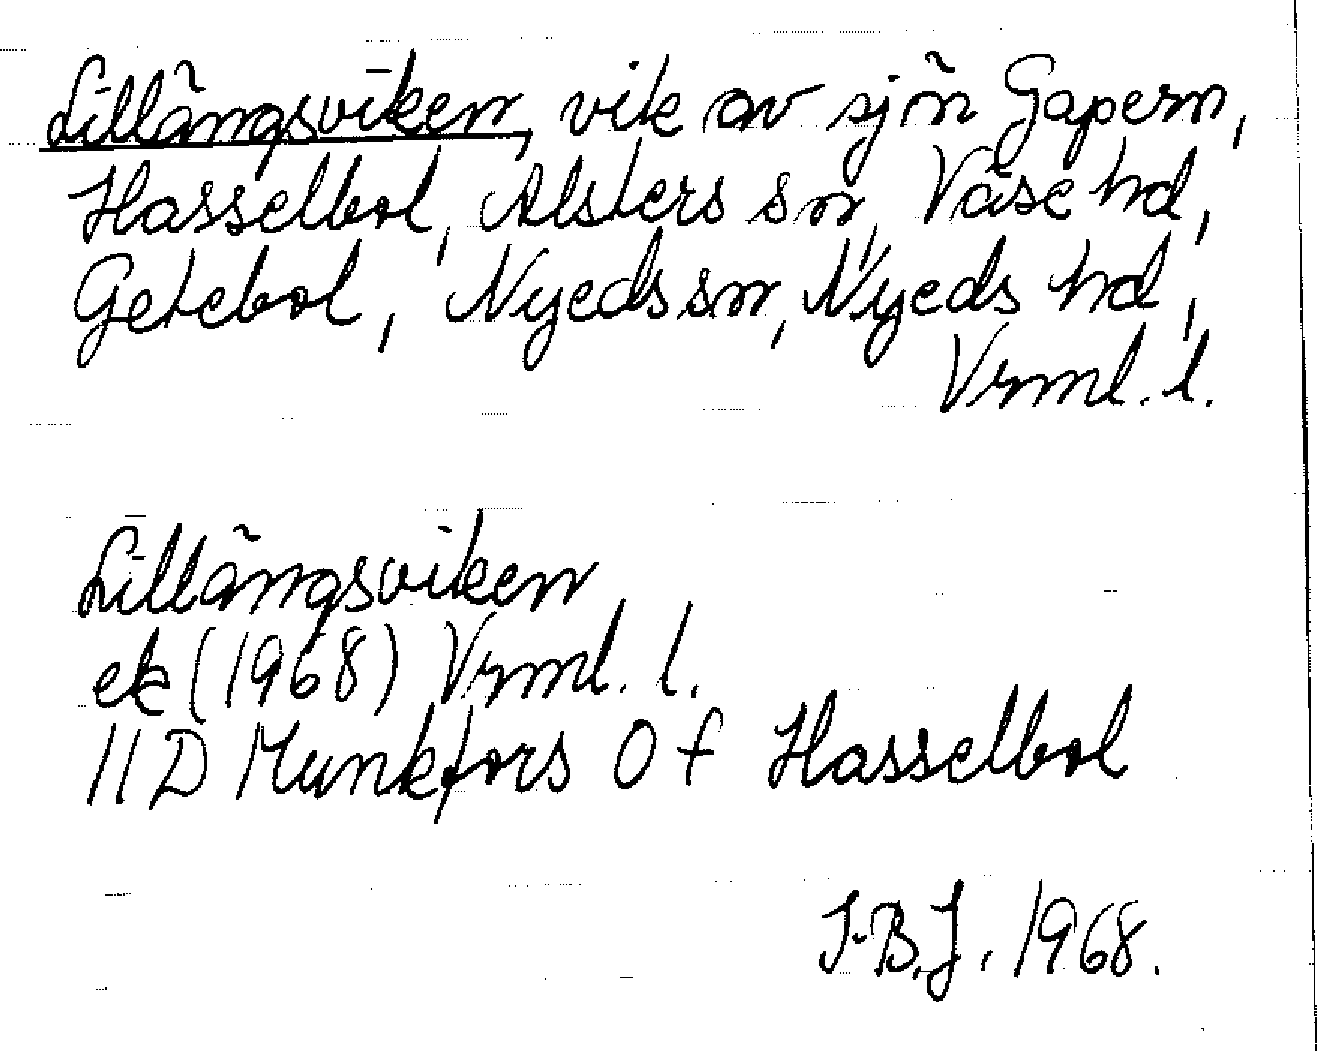 Lillängsviken, vik av sjön Gapern,
Hasselbol, Alsters sn, Väse hd,
Getebol, Nyeds sn, Nyeds hd,
Vrml. l.
Lillängsviken
ek (1968) Vrml. l.
11D Munkfors 0f Hasselbol
I-B.J. 1968.